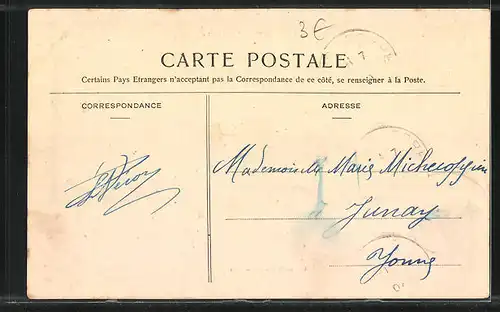 3€
CARTE POSTALE
Certains Pays Etrangers n'acceptant pas la Correspondance de ce côté, se renseigner à la Poste.
CORRESPONDANCE
ADRESSE
Mademoiselle Marie
à Junay
Yonne